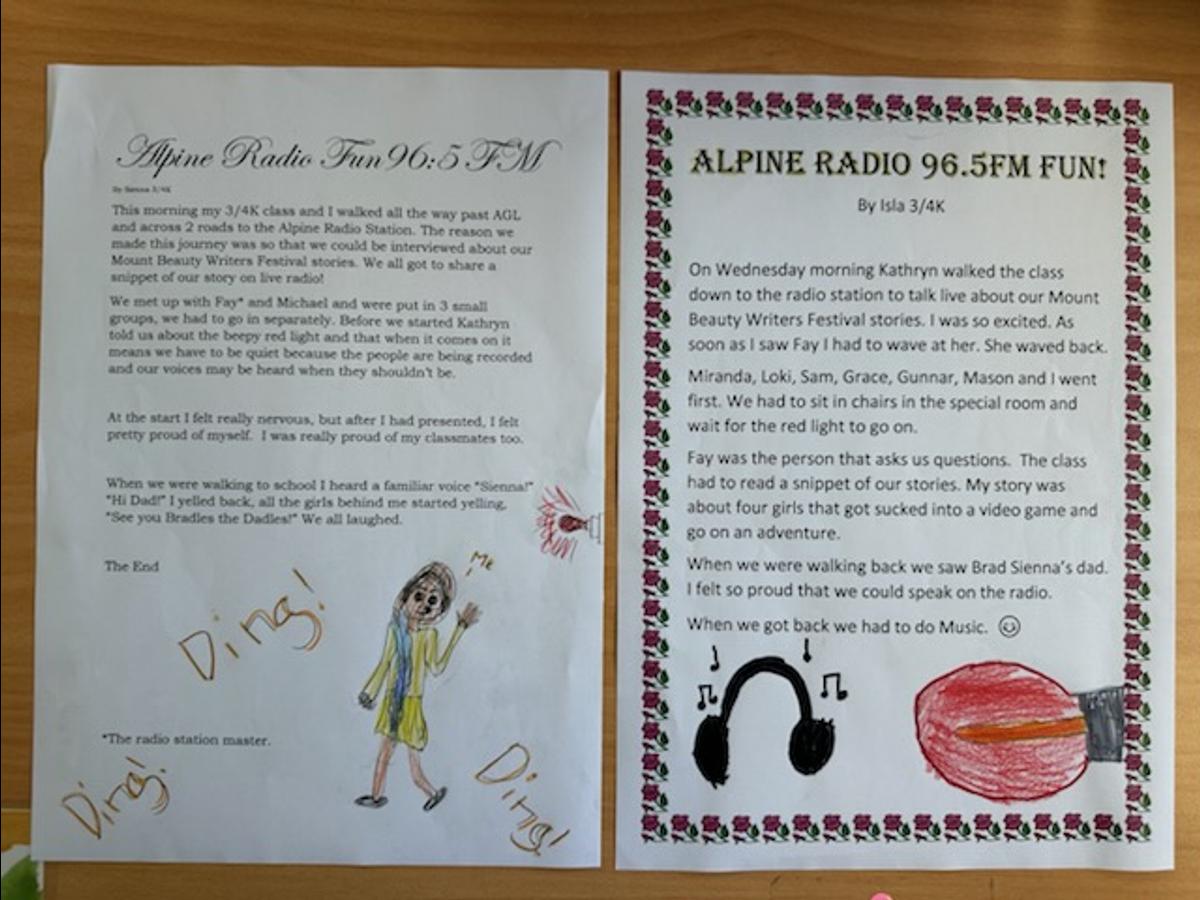 Alpine Radio Fun 96:5 FM
By Sienna 3/4K
This morning my 3/4K class and I walked all the way past AGL
and across 2 roads to the Alpine Radio Station. The reason we
made this journey was so that we could be interviewed about our
Mount Beauty Writers Festival stories. We all got to share a
snippet of our story on live radio!
We met up with Fay* and Michael and were put in 3 small
groups, we had to go in separately. Before we started Kathryn
told us about the beepy red light and that when it comes on it
means we have to be quiet because the people are being recorded
and our voices may be heard when they shouldn't be.
At the start I felt really nervous, but after I had presented, I felt
pretty proud of myself. I was really proud of my classmates too.
When we were walking to school I heard a familiar voice "Sienna!"
"Hi Dad!" I yelled back, all the girls behind me started yelling,
"See you Bradles the Dadles!" We all laughed.
The End
Me
Ding!
*The radio station master.
Ding!
Ding!
ALPINE RADIO 96.5FM FUN!
By Isla 3/4K
On Wednesday morning Kathryn walked the class
down to the radio station to talk live about our Mount
Beauty Writers Festival stories. I was so excited. As
soon as I saw Fay I had to wave at her. She waved back.
Miranda, Loki, Sam, Grace, Gunnar, Mason and I went
first. We had to sit in chairs in the special room and
wait for the red light to go on.
Fay was the person that asks us questions. The class
had to read a snippet of our stories. My story was
about four girls that got sucked into a video game and
go on an adventure.
When we were walking back we saw Brad Sienna's dad.
I felt so proud that we could speak on the radio.
When we got back we had to do Music. ☺